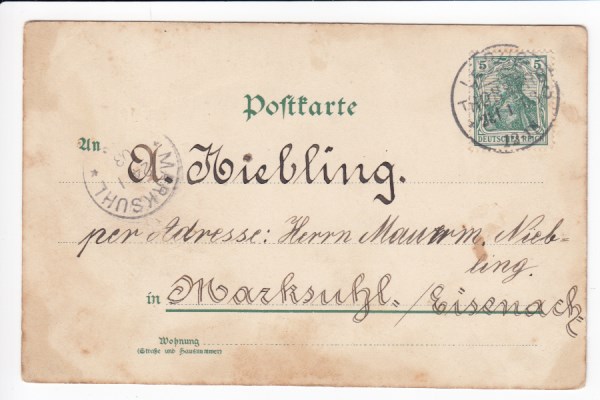 5 5
DEUTSCHES REICH
Postkarte
An
A. Niebling.
MARKSUHL
per Adresse: Herrn Maurerm. Nieb-
ling.
in Marksuhl./Eisenach
Wohnung
(Straße und Hausnummer)